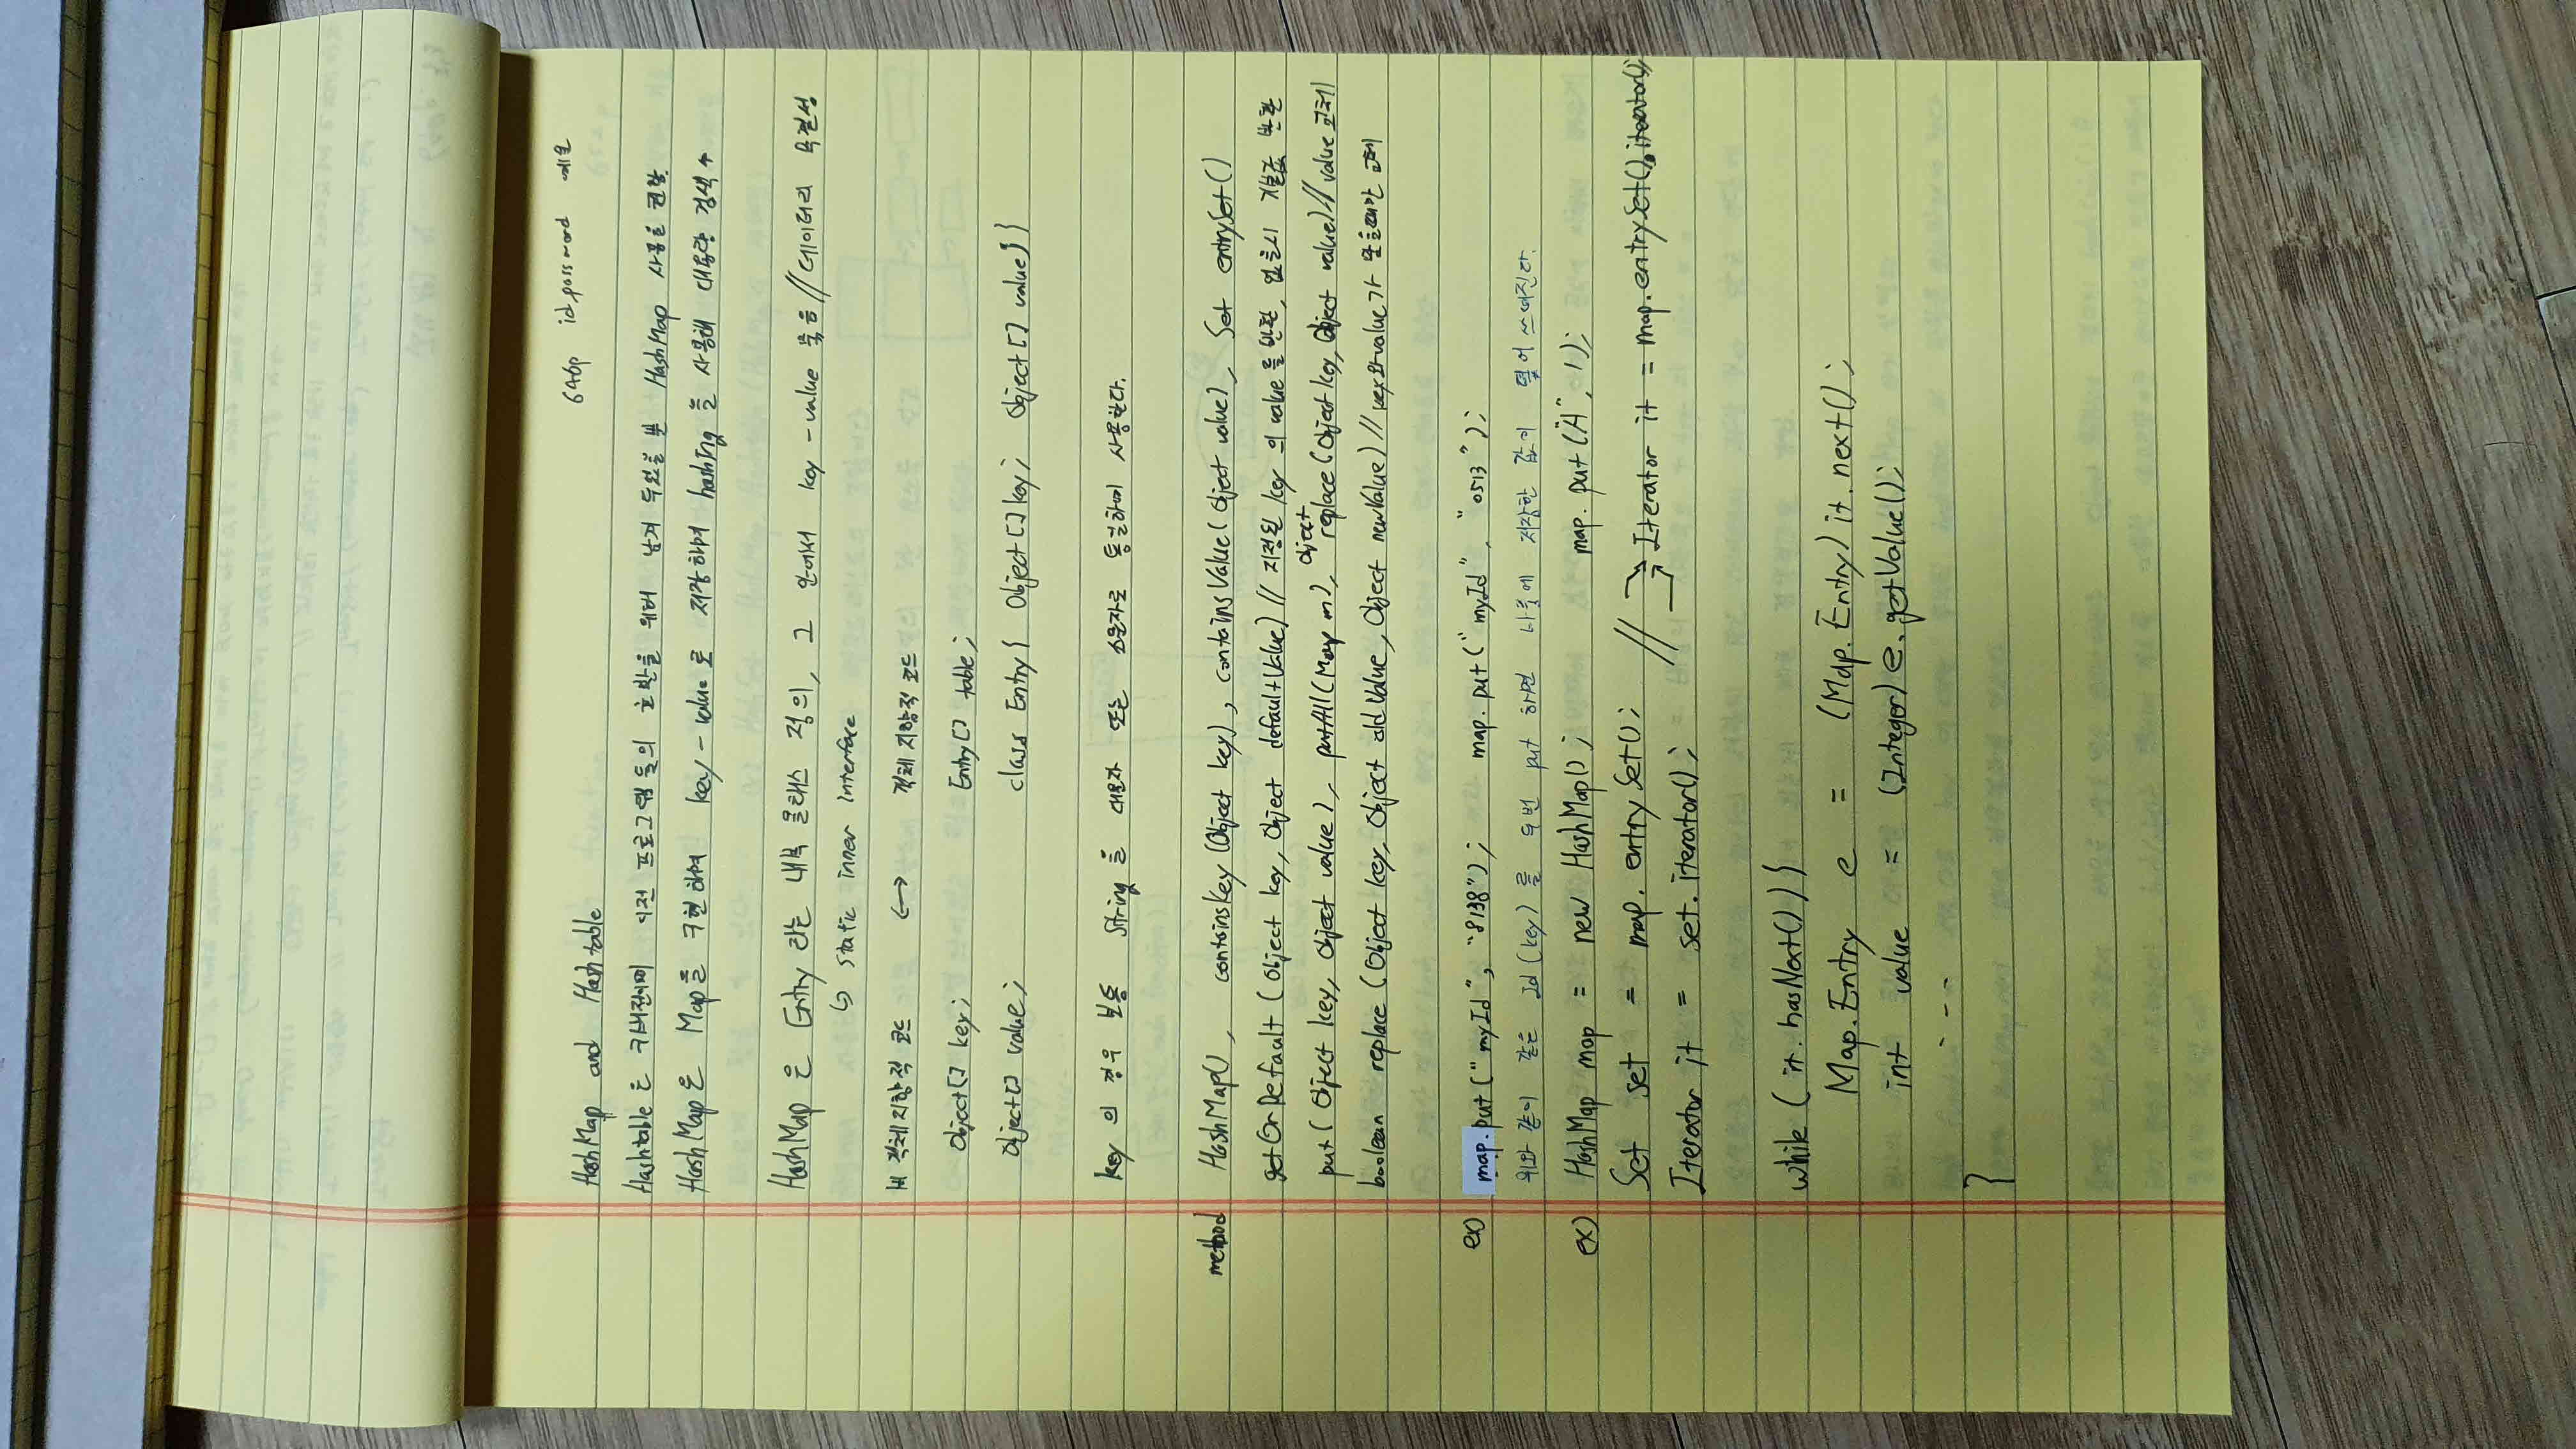 646p id password 예문
HashMap and Hashtable
Hashtable은 구버전이며 이전 프로그램들의 호환을 위해 남겨 두었을 뿐 HashMap 사용을 권장.
HashMap은 Map을 구현하며 key - value로 저장하며 hashing을 사용해 대용량 검색↑
HashMap은 Entry 라는 내부 클래스 정의, 그 안에서 key - value 묶음 // 데이터의 무결성
↳ static inner interface
비 객체지향적 코드 ↔ 객체 지향적 코드
Object[] key; Entry[] table;
Object[] value; class Entry{ Object[] key; Object[] value;}
key 의 경우 보통 String을 대문자 또는 소문자로 통일하여 사용한다.
method HashMap(), containsKey(Object key), containsValue(Object value), Set entrySet()
getOrDefault (Object key, Object defaultValue) // 지정된 key 의 value를 반환, 없을시 기본값 반환
put( Object key, Object value), putAll(Map m), Object replace(Object key, Object value) // value 교체
boolean replace (Object key, Object oldValue, Object newValue) // key와 value가 맞을때만 교체
ex) map.put("myId", "8138"); map.put("myId", "0513");
위와 같이 같은 Id(key)를 두번 put 하면 나중에 저장한 값이 덮어 쓰여진다.
ex) HashMap map = new HashMap(); map.put("A", 1);
Set set = map.entrySet(); // → Iterator it = map.entrySet().iterator();
Iterator it = set.iterator();
while (it.hasNext()){
Map.Entry e = (Map.Entry) it.next();
int value = (Integer) e.getValue();
----
}